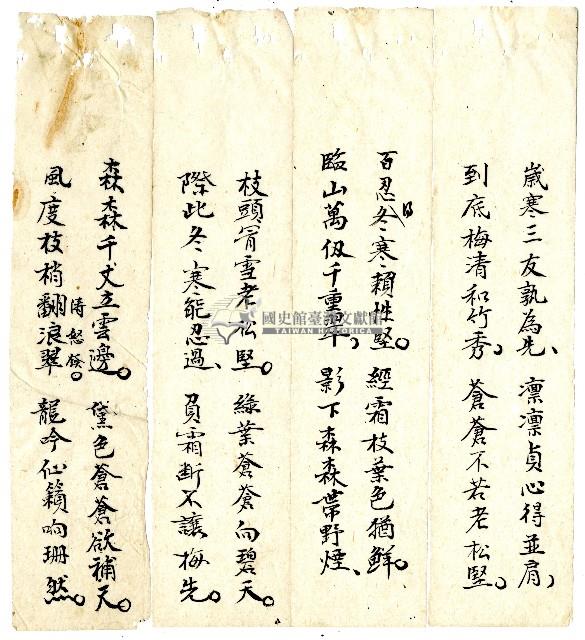 歲寒三友孰為先、凛凛貞心得並肩、
到底梅清和竹秀、蒼蒼不若老松堅。
百忍冬寒賴性堅。經霜枝葉色猶鮮。
日
臨山萬仭千重翠、影下森森帶野煙、
枝頭冒雪老松堅。綠葉蒼蒼向碧天。
際此冬寒能忍過、負霜斷不讓梅先。
森森千丈立雲邊。黛色蒼蒼欲補天。
風度枝梢翻浪翠。龍吟仙籟响珊然。
濤怒
國史館臺灣文獻館
TAIWAN HISTORICA